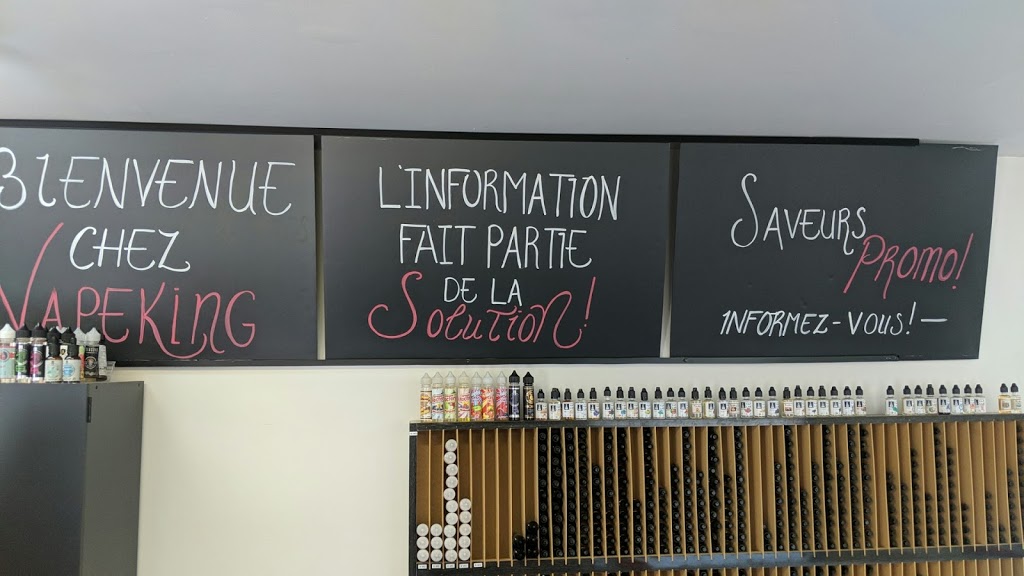 BIENVENUE
CHEZ
VAPEKING
L'INFORMATION
FAIT PARTIE
DE LA
SOLUTION!
SAVEURS
PROMO!
INFORMEZ-VOUS! —